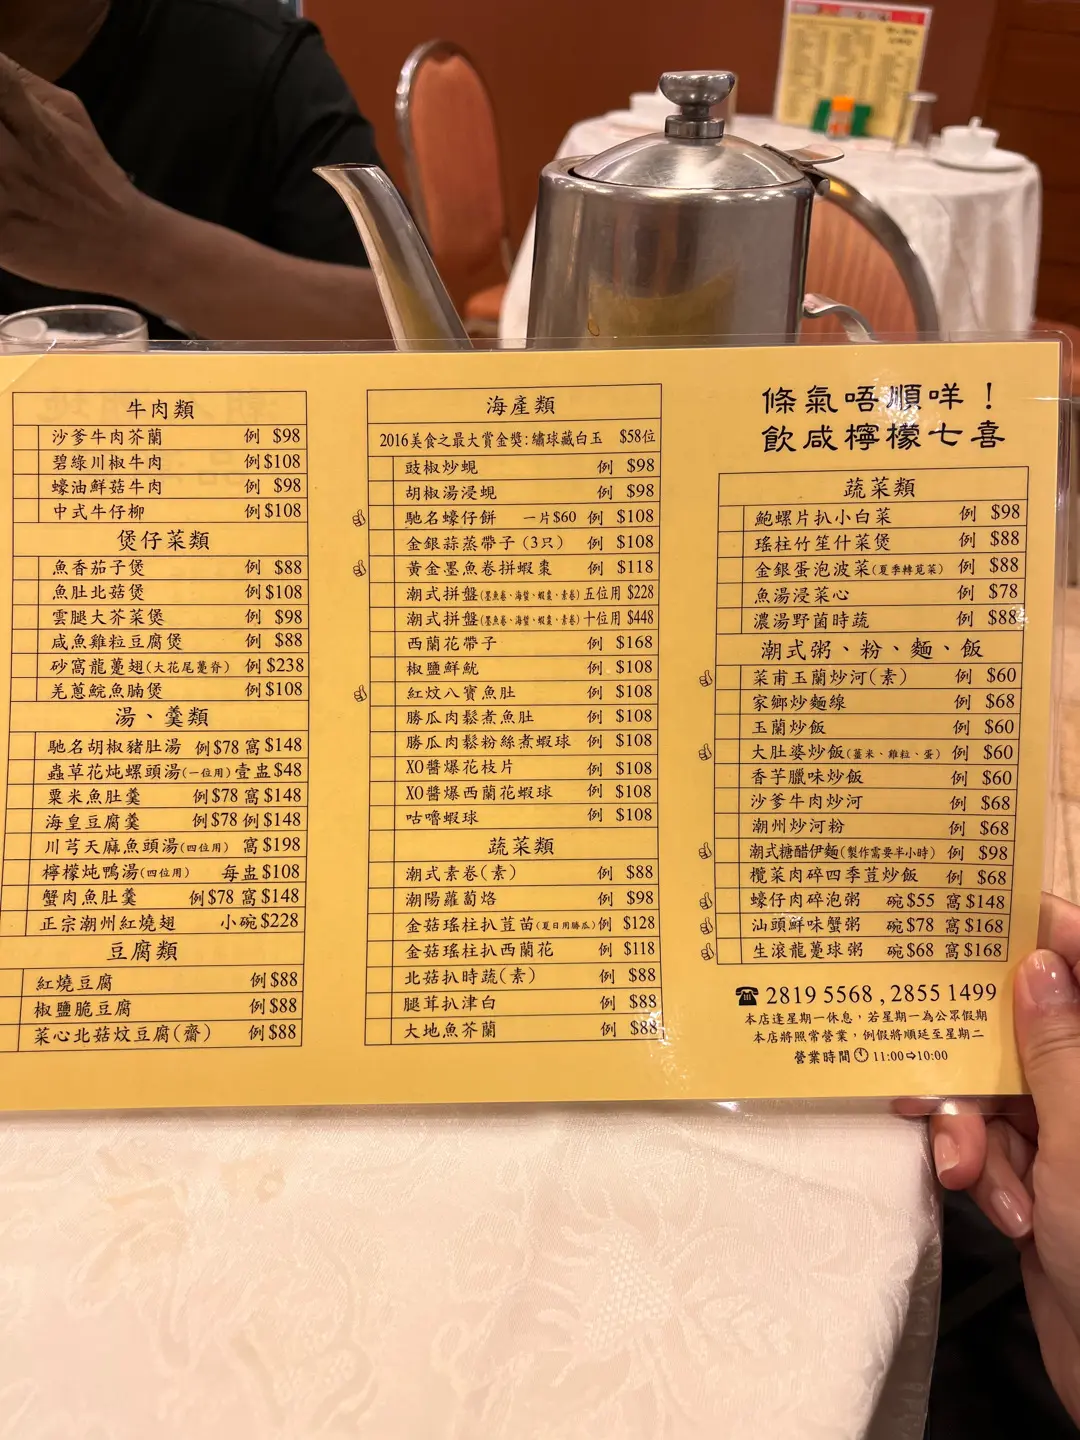 牛肉類
沙爹牛肉芥蘭 例 $98
碧綠川椒牛肉 例 $108
蠔油鮮菇牛肉 例 $98
中式牛仔柳 例 $108
煲仔菜類
魚香茄子煲 例 $88
魚肚北菇煲 例 $108
雲腿大芥菜煲 例 $98
咸魚雞粒豆腐煲 例 $88
砂窩龍躉翅(大花尾躉脊) 例 $238
羌蔥鯇魚腩煲 例 $108
湯、羹類
馳名胡椒豬肚湯 例 $78 窩 $148
蟲草花炖螺頭湯(一位用) 壹盅 $48
粟米魚肚羹 例 $78 窩 $148
海皇豆腐羹 例 $78 例 $148
川芎天麻魚頭湯(四位用) 窩 $198
檸檬炖鴨湯(四位用) 每盅 $108
蟹肉魚肚羹 例 $78 窩 $148
正宗潮州紅燒翅 小碗 $228
豆腐類
紅燒豆腐 例 $88
椒鹽脆豆腐 例 $88
菜心北菇炆豆腐(齋) 例 $88
海產類
2016美食之最大賞金獎:繡球藏白玉 $58位
豉椒炒蜆 例 $98
胡椒湯浸蜆 例 $98
馳名蠔仔餅 一片$60 例 $108
金銀蒜蒸帶子(3只) 例 $108
黃金墨魚卷拼蝦棗 例 $118
潮式拼盤(墨魚卷、海蜇、蝦棗、素卷) 五位用 $228
潮式拼盤(墨魚卷、海蜇、蝦棗、素卷) 十位用 $448
西蘭花帶子 例 $168
椒鹽鮮魷 例 $108
紅炆八寶魚肚 例 $108
勝瓜肉鬆煮魚肚 例 $108
勝瓜肉鬆粉絲煮蝦球 例 $108
XO醬爆花枝片 例 $108
XO醬爆西蘭花蝦球 例 $108
咕嚕蝦球 例 $108
蔬菜類
潮式素卷(素) 例 $88
潮陽蘿蔔烙 例 $98
金菇瑤柱扒荳苗(夏日用勝瓜) 例 $128
金菇瑤柱扒西蘭花 例 $118
北菇扒時蔬(素) 例 $88
腿茸扒津白 例 $88
大地魚芥蘭 例 $88
條氣唔順咩！
飲咸檸檬七喜
蔬菜類
鮑螺片扒小白菜 例 $98
瑤柱竹笙什菜煲 例 $88
金銀蛋泡波菜(夏季轉莧菜) 例 $88
魚湯浸菜心 例 $78
濃湯野菌時蔬 例 $88
潮式粥、粉、麵、飯
菜甫玉蘭炒河(素) 例 $60
家鄉炒麵線 例 $68
玉蘭炒飯 例 $60
大肚婆炒飯(薑米、雞粒、蛋) 例 $60
香芋臘味炒飯 例 $60
沙爹牛肉炒河 例 $68
潮州炒河粉 例 $68
潮式糖醋伊麵(製作需要半小時) 例 $98
欖菜肉碎四季荳炒飯 例 $68
蠔仔肉碎泡粥 碗 $55 窩 $148
汕頭鮮味蟹粥 碗 $78 窩 $168
生滾龍躉球粥 碗 $68 窩 $168
☎ 2819 5568 , 2855 1499
本店逢星期一休息，若星期一為公眾假期
本店將照常營業，例假將順延至星期二
營業時間 11:00⇨10:00